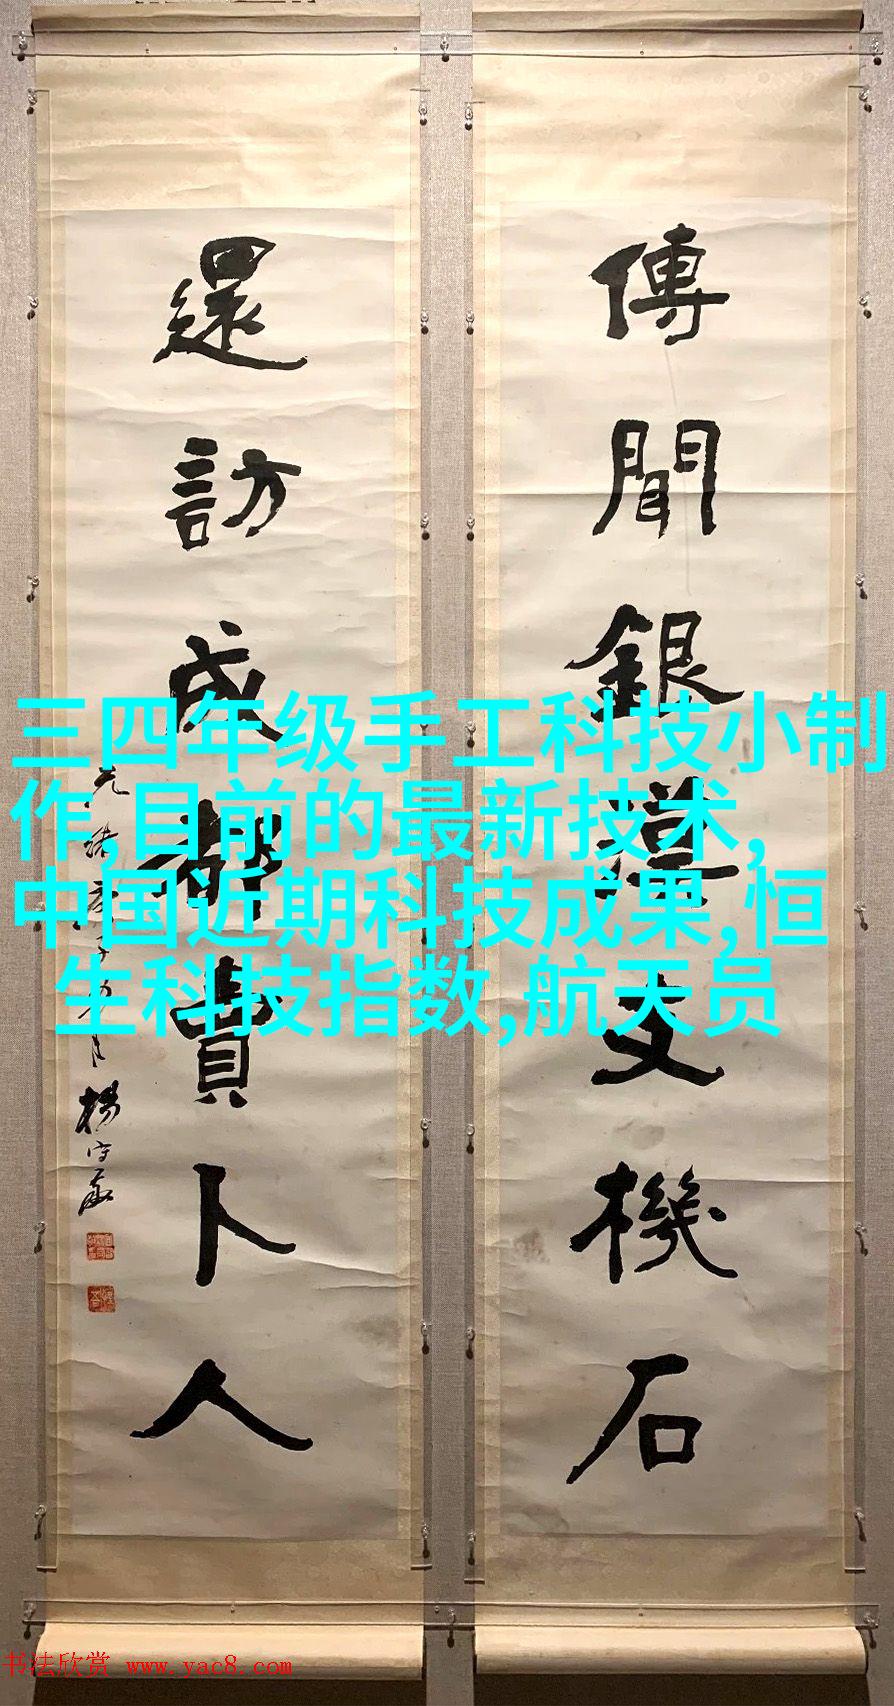 傳聞銀漢支機石
還訪成都賣卜人
光緒庚子
月
楊守敬
三四年级手工科技小制
作,目前的最新技术,
中国近期科技成果,恒
生科技指数,航天员
书法欣赏 www.yac8.com